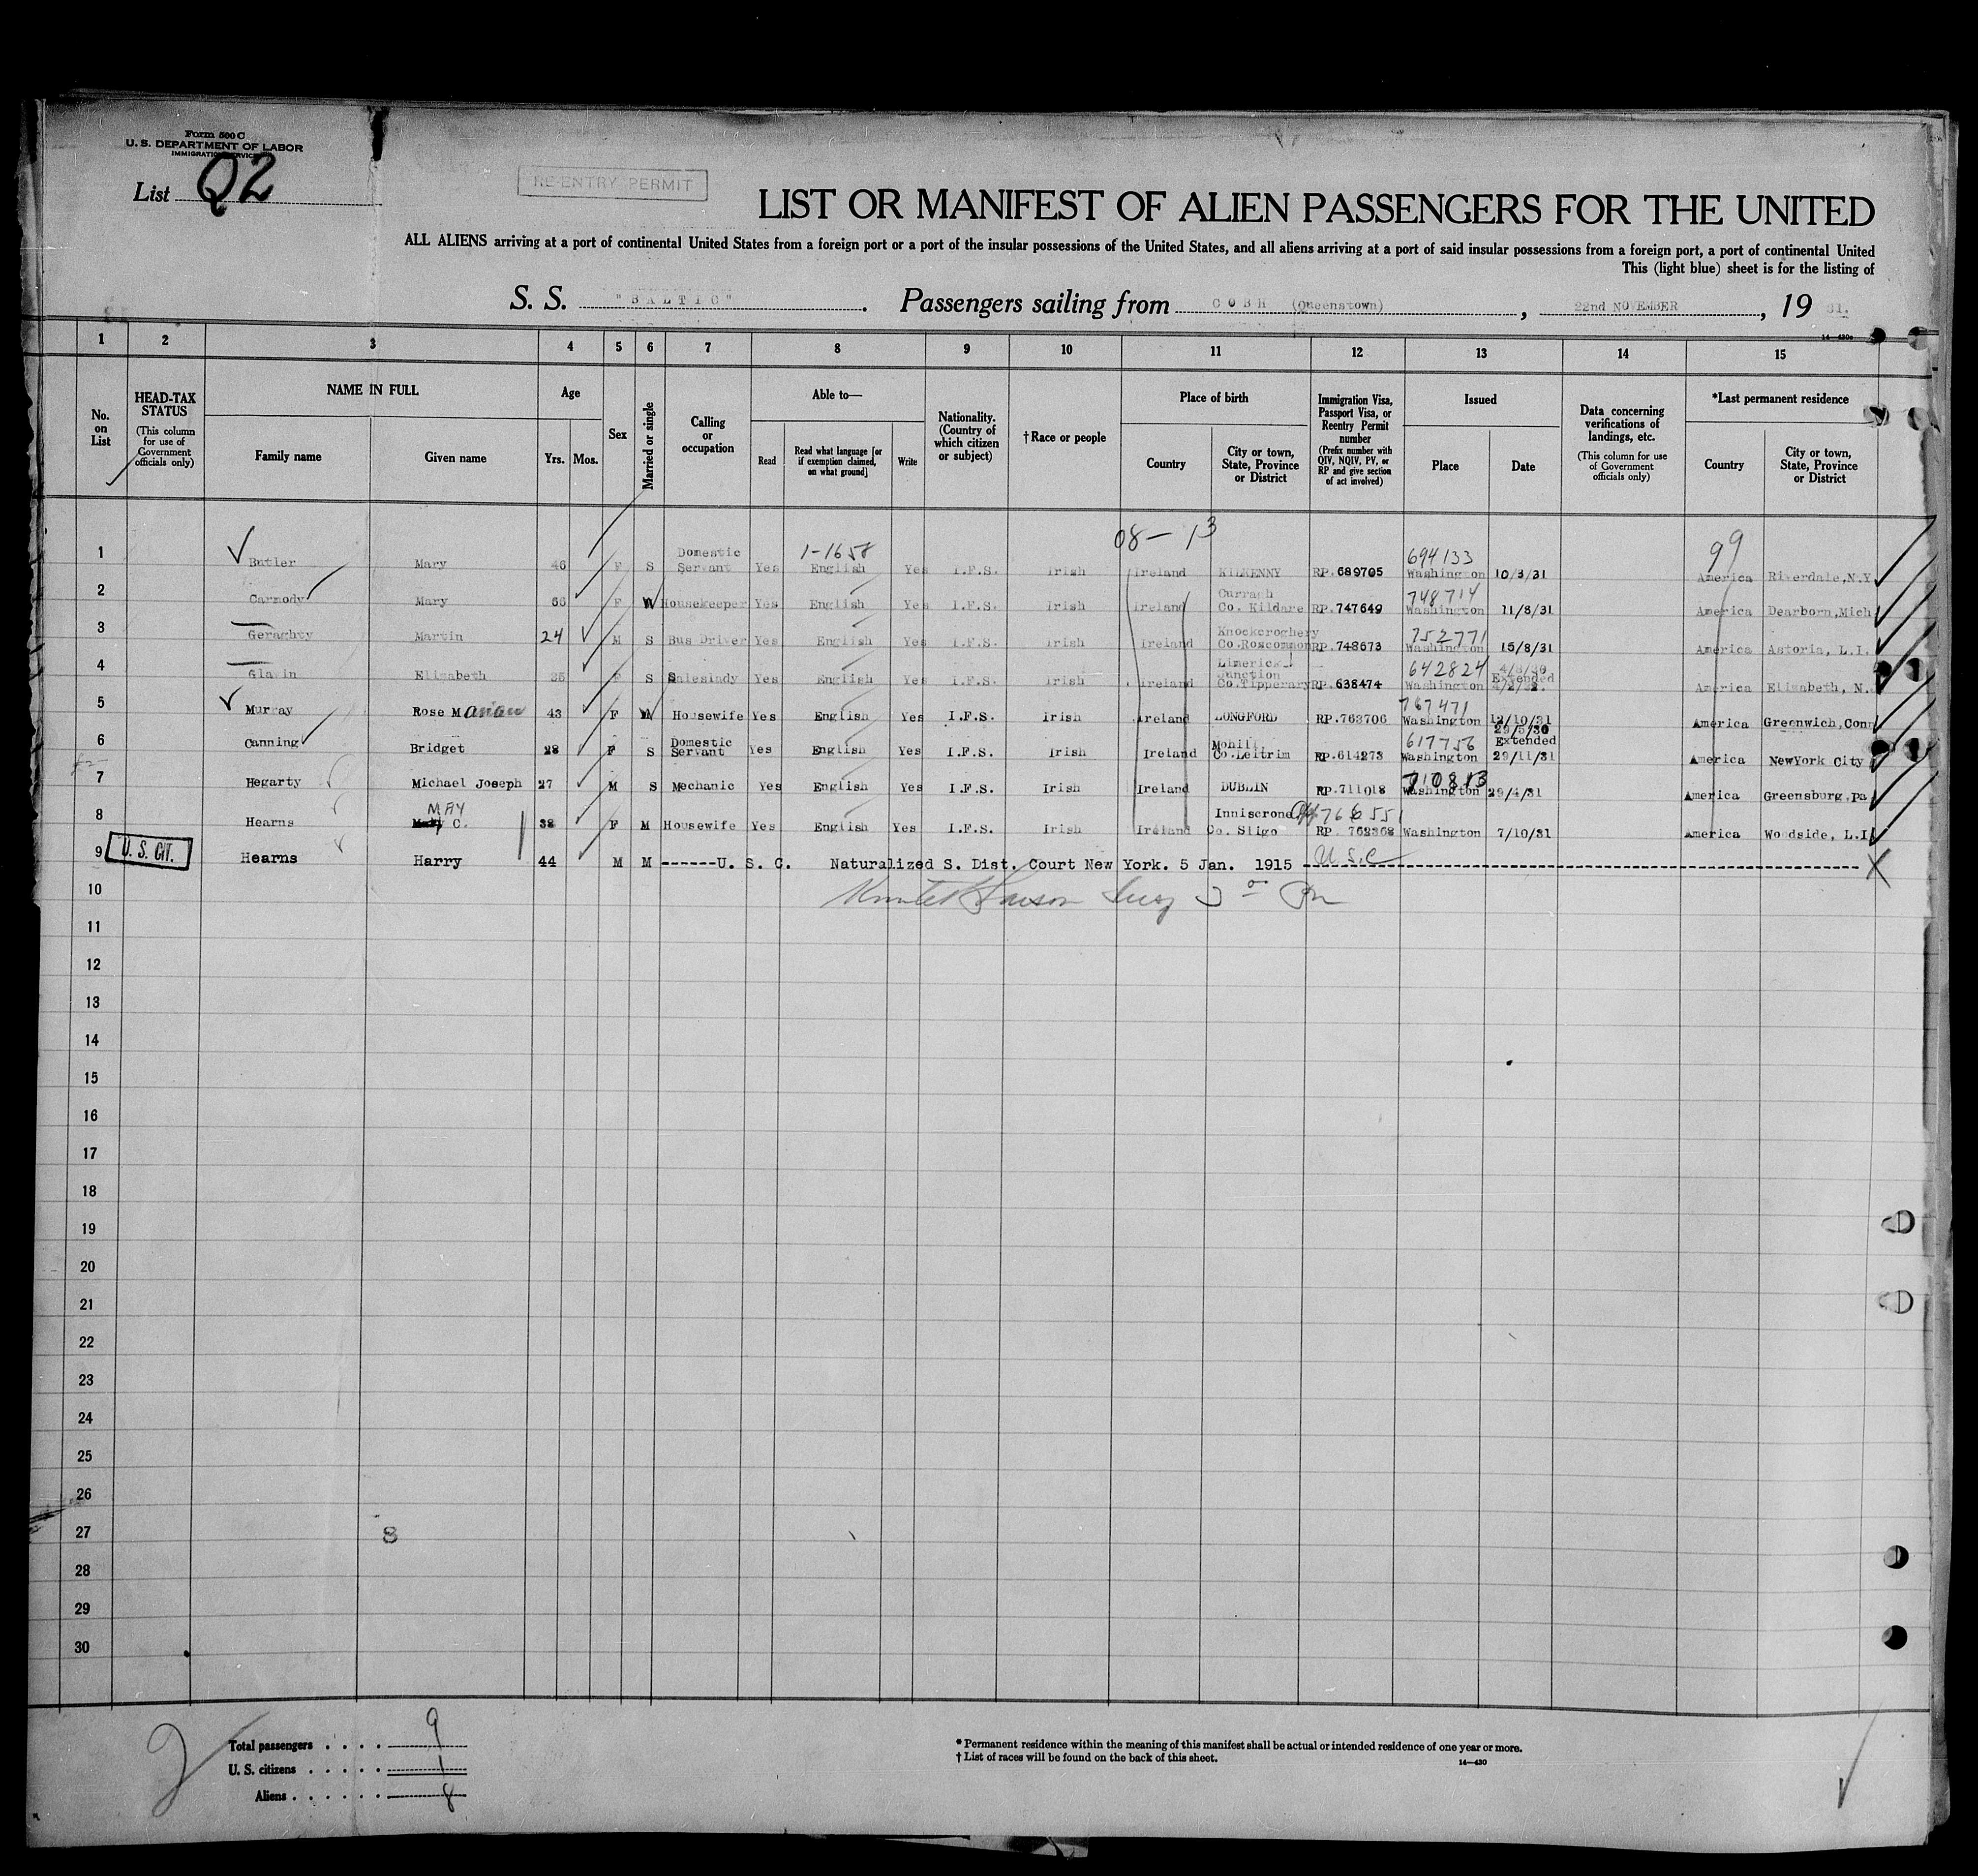 Form 500 C
U. S. DEPARTMENT OF LABOR
IMMIGRATION SERVICE
List Q2
RE-ENTRY PERMIT
LIST OR MANIFEST OF ALIEN PASSENGERS FOR THE UNITED
ALL ALIENS arriving at a port of continental United States from a foreign port or a port of the insular possessions of the United States, and all aliens arriving at a port of said insular possessions from a foreign port, a port of continental United
This (light blue) sheet is for the listing of
S. S. "BALTIC". Passengers sailing from COBH (Queenstown), 22nd NOVEMBER, 19 31.
14—430
1 2 3 4 5 6 7 8 9 10 11 12 13 14 15
No. on List
HEAD-TAX STATUS (This column for use of Government officials only)
NAME IN FULL
Family name Given name
Age
Yrs. Mos.
Sex
Married or single
Calling or occupation
Able to—
Read Read what language [or if exemption claimed, on what ground] Write
Nationality. (Country of which citizen or subject)
†Race or people
Place of birth
Country City or town, State, Province or District
Immigration Visa, Passport Visa, or Reentry Permit number (Prefix number with QIV, NQIV, PV, or RP and give section of act involved)
Issued
Place Date
Data concerning verifications of landings, etc. (This column for use of Government officials only)
*Last permanent residence
Country City or town, State, Province or District
1-1658 08-13 694133 99
1 Butler Mary 46 F S Domestic Servant Yes English Yes I.F.S. Irish Ireland KILKENNY RP.689705 Washington 10/3/31 America Riverdale,N.Y
748714
2 Carmody Mary 66 F W Housekeeper Yes English Yes I.F.S. Irish Ireland Curragh Co. Kildare RP.747649 Washington 11/8/31 America Dearborn,Mich
752771
3 Geraghty Martin 24 M S Bus Driver Yes English Yes I.F.S. Irish Ireland Knockcroghery Co.Roscommon RP.748673 Washington 15/8/31 America Astoria, L.I.
642824
4 Glavin Elizabeth 35 F S Saleslady Yes English Yes I.F.S. Irish Ireland Limerick Junction Co.Tipperary RP.638474 Washington Extended 4/2/32. America Elizabeth, N.
767471
5 Murray Rose Marian 43 F W Housewife Yes English Yes I.F.S. Irish Ireland LONGFORD RP.763706 Washington 12/10/31 America Greenwich,Conn
617756
6 Canning Bridget 28 F S Domestic Servant Yes English Yes I.F.S. Irish Ireland Mohill Co.Leitrim RP.614273 Washington 29/5/30 Extended 29/11/31 America NewYork City
710813
7 Hegarty Michael Joseph 27 M S Mechanic Yes English Yes I.F.S. Irish Ireland DUBLIN RP.711018 Washington 29/4/31 America Greensburg.Pa
MAY 766551
8 Hearns Mary C. 38 F M Housewife Yes English Yes I.F.S. Irish Ireland Inniscrone Co. Sligo RP. 762368 Washington 7/10/31 America Woodside, L.I
9 U. S. CIT. Hearns Harry 44 M M ------U. S. C. Naturalized S. Dist. Court New York. 5 Jan. 1915 U.S.C
10
11
12
13
14
15
16
17
18
19
20
21
22
23
24
25
26
27 8
28
29
30
2
Total passengers . . . . 9
U. S. citizens . . . . . 1
Aliens . . . . . . 8
* Permanent residence within the meaning of this manifest shall be actual or intended residence of one year or more.
† List of races will be found on the back of this sheet.
14—430